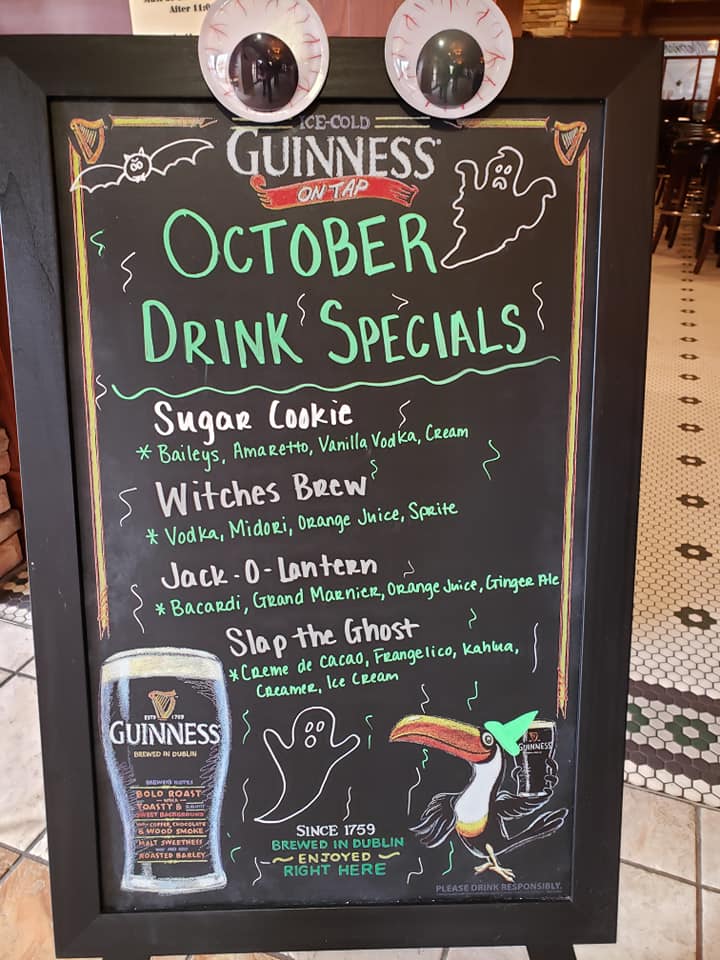 After 11:0
ICE-COLD
GUINNESS
ON TAP
OCTOBER
DRINK SPECIALS
Sugar Cookie
* Baileys, Amaretto, Vanilla Vodka, Cream
Witches Brew
* Vodka, Midori, Orange Juice, Sprite
Jack-O-Lantern
* Bacardi, Grand Marnier, Orange Juice, Ginger Ale
Slap the Ghost
* Creme de cacao, Frangelico, Kahlua,
Creamer, Ice Cream
ESTD 1759
GUINNESS
BREWED IN DUBLIN
BREWER'S NOTES
BOLD ROAST
TOASTY &
SWEET BACKGROUND
COFFEE, CHOCOLATE
& WOOD SMOKE
MALT SWEETNESS
ROASTED BARLEY
GUINNESS
SINCE 1759
BREWED IN DUBLIN
ENJOYED
RIGHT HERE
PLEASE DRINK RESPONSIBLY.